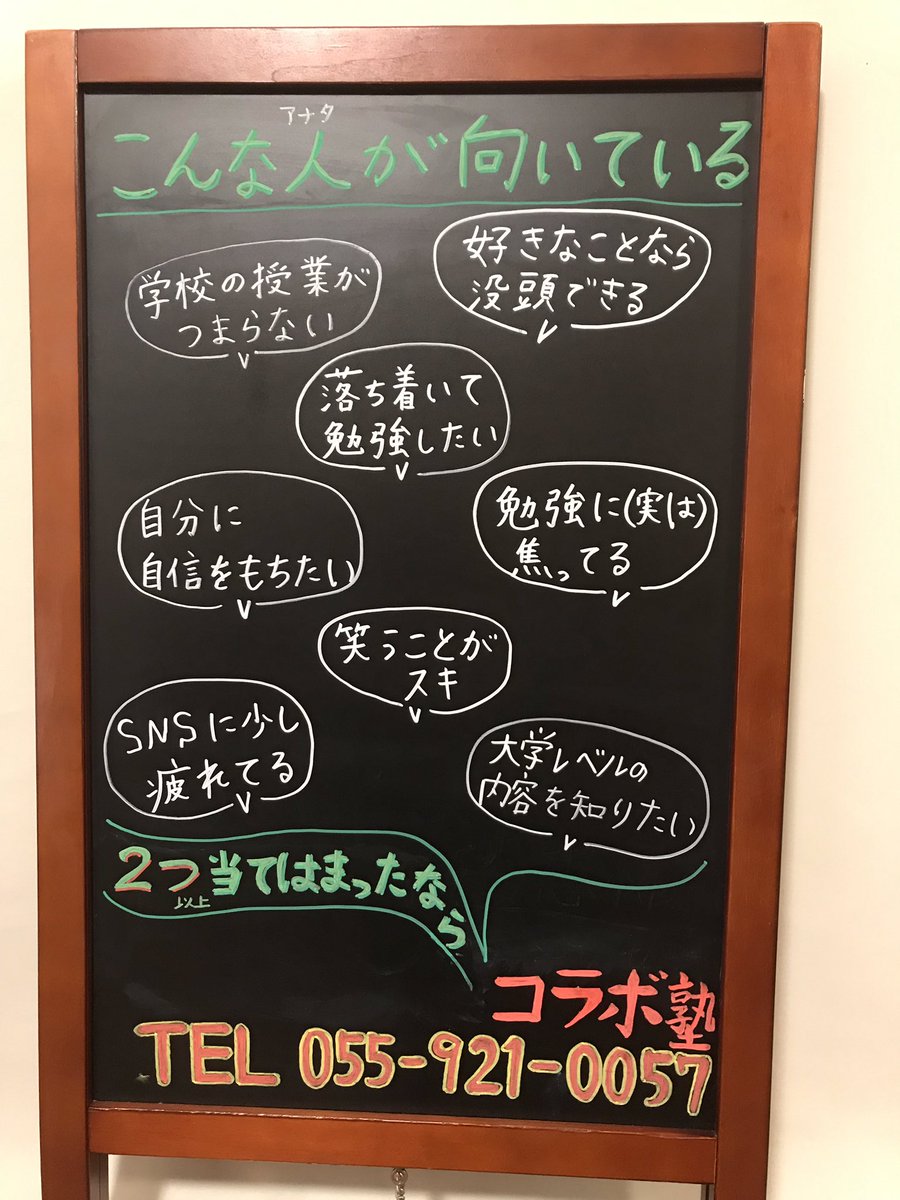 アナタ
こんな人が向いている
学校の授業が
つまらない
好きなことなら
没頭できる
落ち着いて
勉強したい
自分に
自信をもちたい
勉強に(実は)
焦ってる
笑うことが
スキ
SNSに少し
疲れてる
大学レベルの
内容を知りたい
2つ当てはまったなら
以上
コラボ塾
TEL 055-921-0057